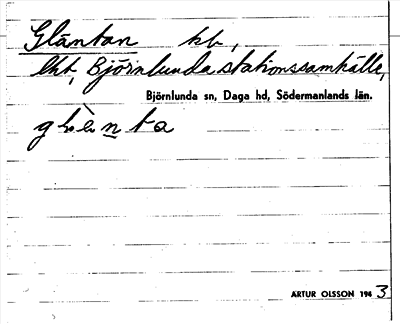 Gläntan hb,
lht, Björnlunda stationssamhälle,
Björnlunda sn, Daga hd, Södermanlands län.
glènta
ARTUR OLSSON 1943